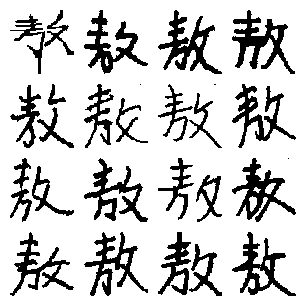 敖敖敖敖
敖敖敖敖
敖敖敖敖
敖敖敖敖